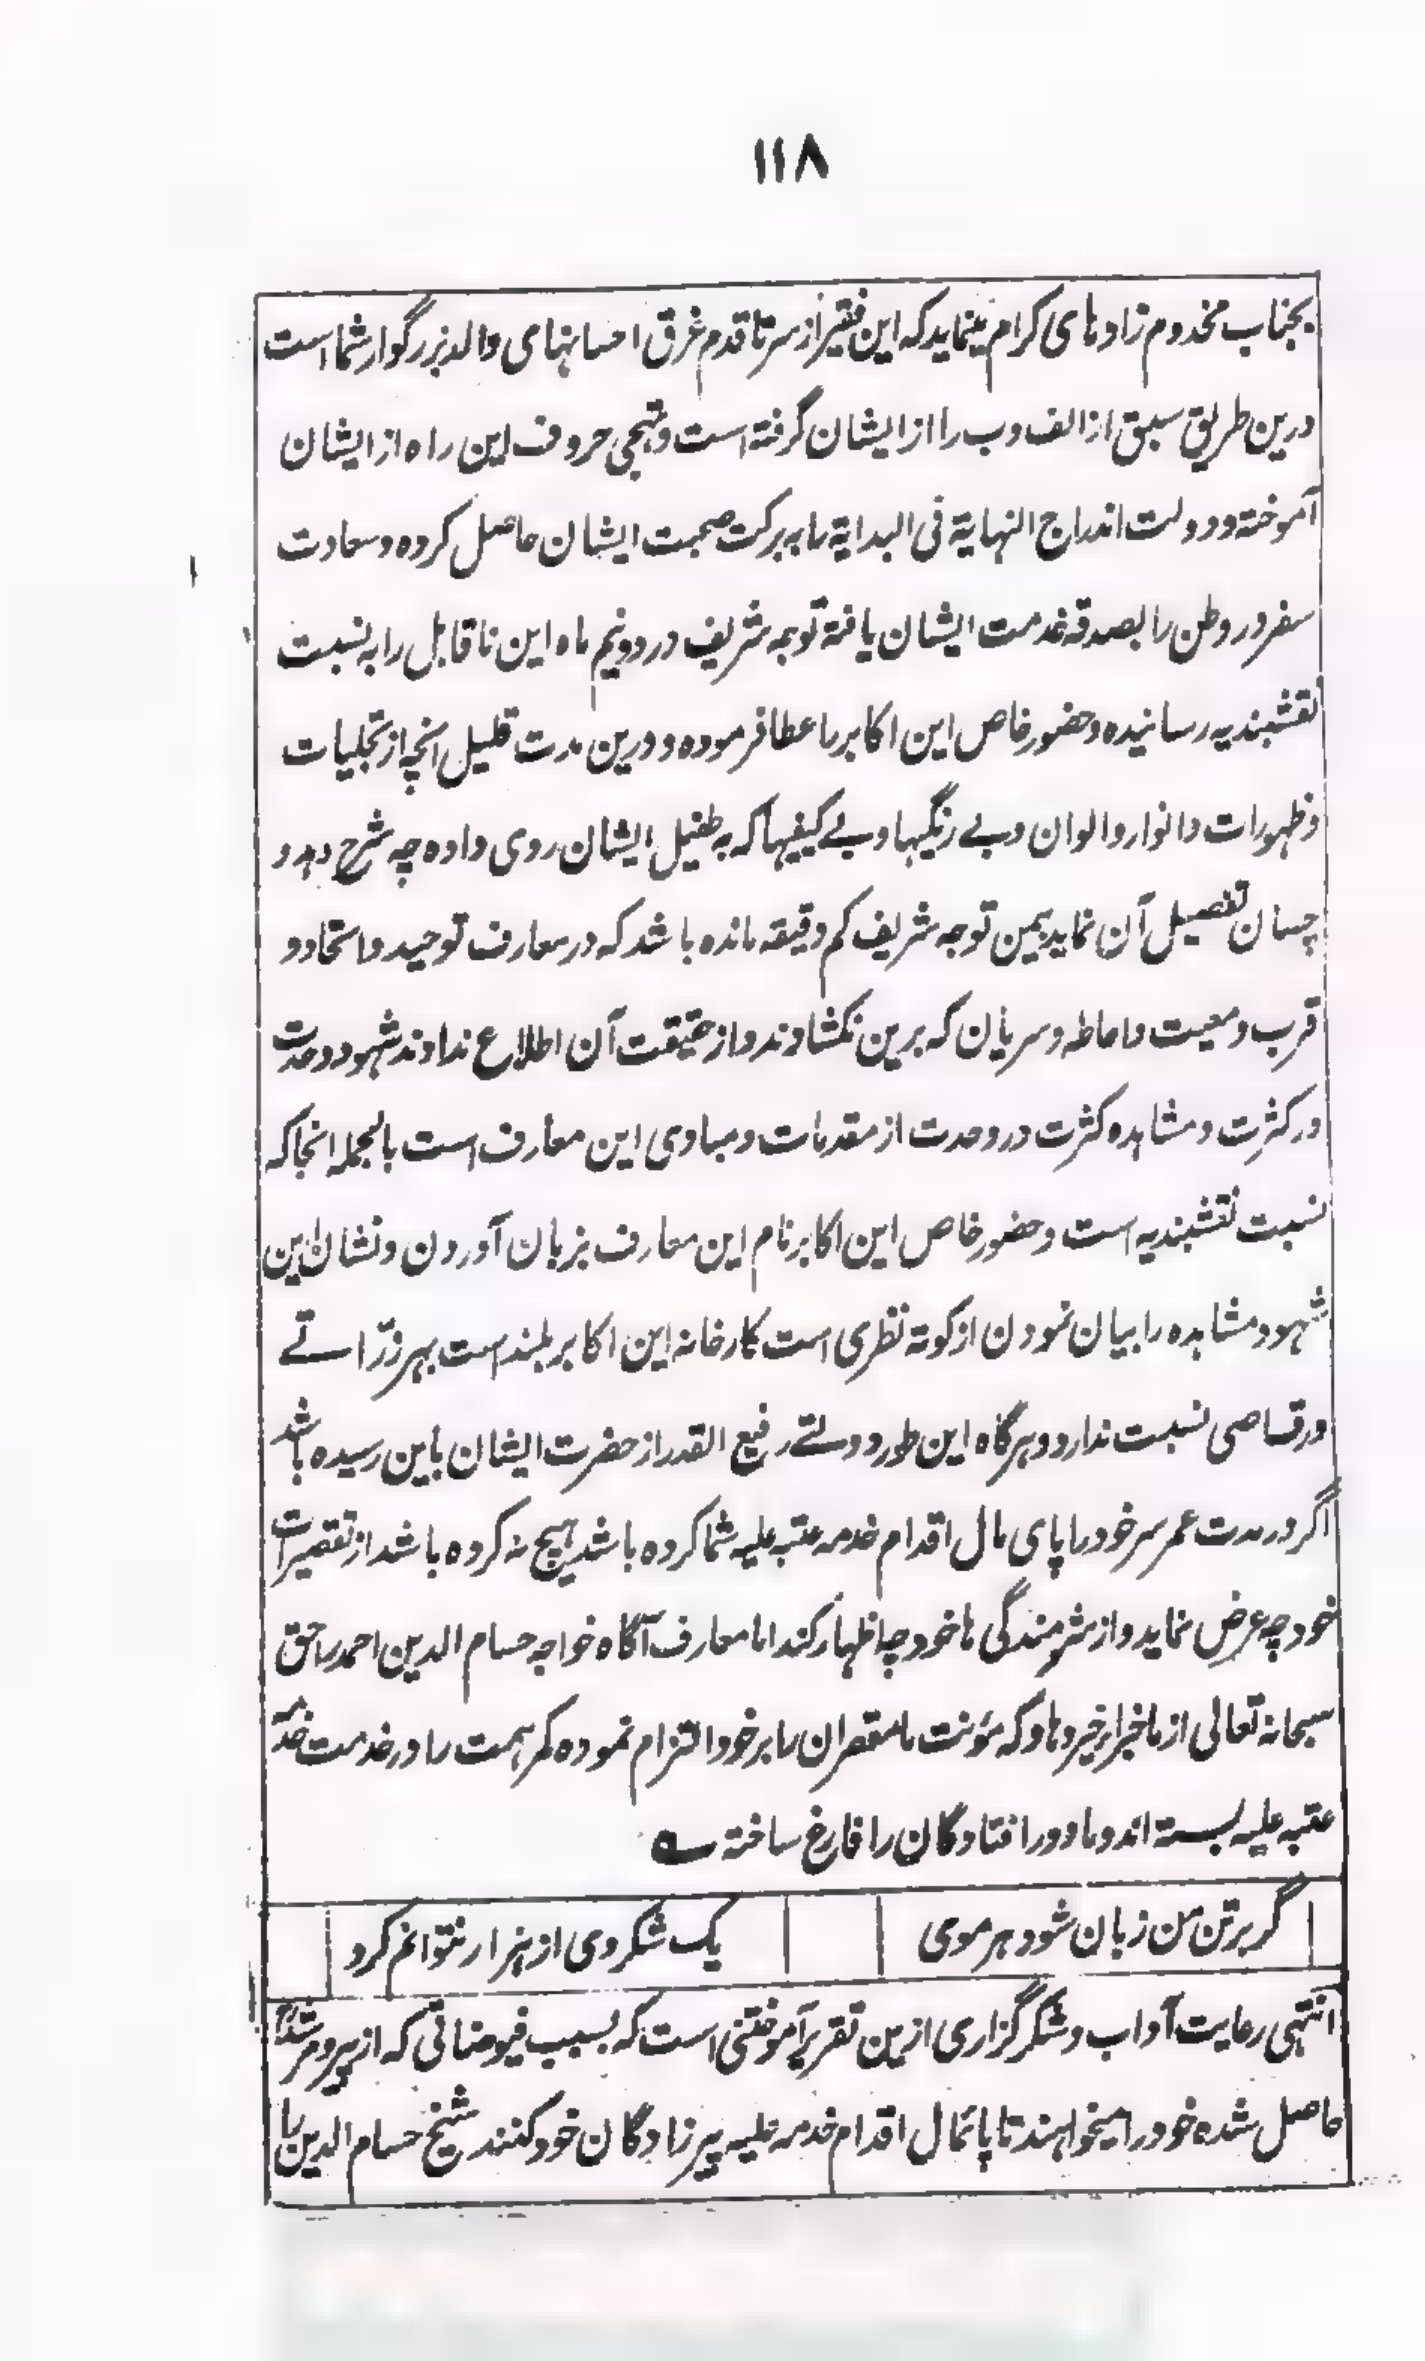 ۱۱۸
بجناب مخدوم زادهای کرام مینماید که این فقیر از سر تا قدم غرق احسانهای والد بزرگوار شما است
درین طریق سبق از الف و ب را از ایشان گرفته است و تهجی حروف این راه از ایشان
آموخته و دولت اندراج النهایة فی البدایة را به برکت صحبت ایشان حاصل کرده و سعادت
سفر در وطن را بصدقه خدمت ایشان یافته توجه شریف در دو نیم ماه این ناقابل را به نسبت
نقشبندیه رسانیده و حضور خاص این اکابر را عطا فرموده و درین مدت قلیل انچه از تجلیات
و ظهورات و انوار و الوان و بے رنگیها و بے کیفیها که به طفیل ایشان روی داده چه شرح دهد و
چسان تفصیل آن نماید بیمن توجه شریف کم دقیقه مانده باشد که در معارف توحید و اتحاد و
قرب و معیت و احاطه و سریان که برین نکشادند و از حقیقت آن اطلاع ندادند شهود وحدت
در کثرت و مشاهده کثرت در وحدت از مقدمات و مبادی این معارف است بالجمله انجا که
نسبت نقشبندیه است و حضور خاص این اکابر نام این معارف بزبان آوردن و نشان این
شهود و مشاهده را بیان نمودن از کوته نظری است کارخانه این اکابر بلند است بهر زرّاقے
و رقاصی نسبت ندارد و هرگاه این طور دولتے رفیع القدر از حضرت ایشان باین رسیده باشد
اگر در مدت عمر سر خود را پای مال اقدام خدمه عتبه علیه شما کرده باشد هیچ نه کرده باشد از تقصیرات
خود چه عرض نماید و از شرمندگی ها خود چه اظهار کند اما معارف آگاه خواجه حسام الدین احمد را حق
سبحانه تعالی از ما خبر از خیر دهاد که مؤنت ما مقصران را بر خود التزام نموده کمر همت را در خدمت خدمه
عتبه علیه بسته اند و ما دور افتادگان را فارغ ساخته ؎
گر بر تن من زبان شود هر موی یک شکر وی از هزار نتوانم کرد
انتهی رعایت آداب و شکر گزاری ازین تقریر آموختنی است که بسبب فیوضاتی که از پیر و مرشد
حاصل شده خود را میخواهند تا پائمال اقدام خدمه علیه پیرزادگان خود کنند شیخ حسام الدین را